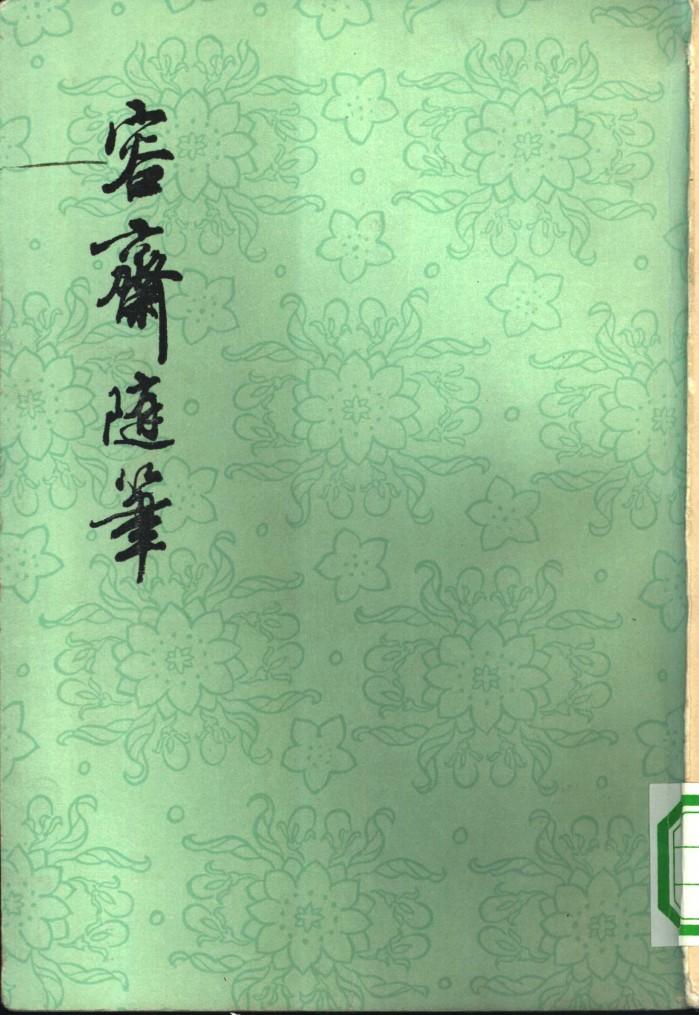 容齋隨筆